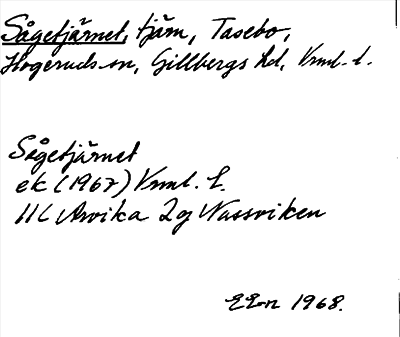 Sågetjärnet, tjärn, Tasebo,
Högeruds sn, Gillbergs hd, Vrml. l.
Sågetjärnet
ek (1967) Vrml. l.
11C Arvika 2g Nussviken
1968.